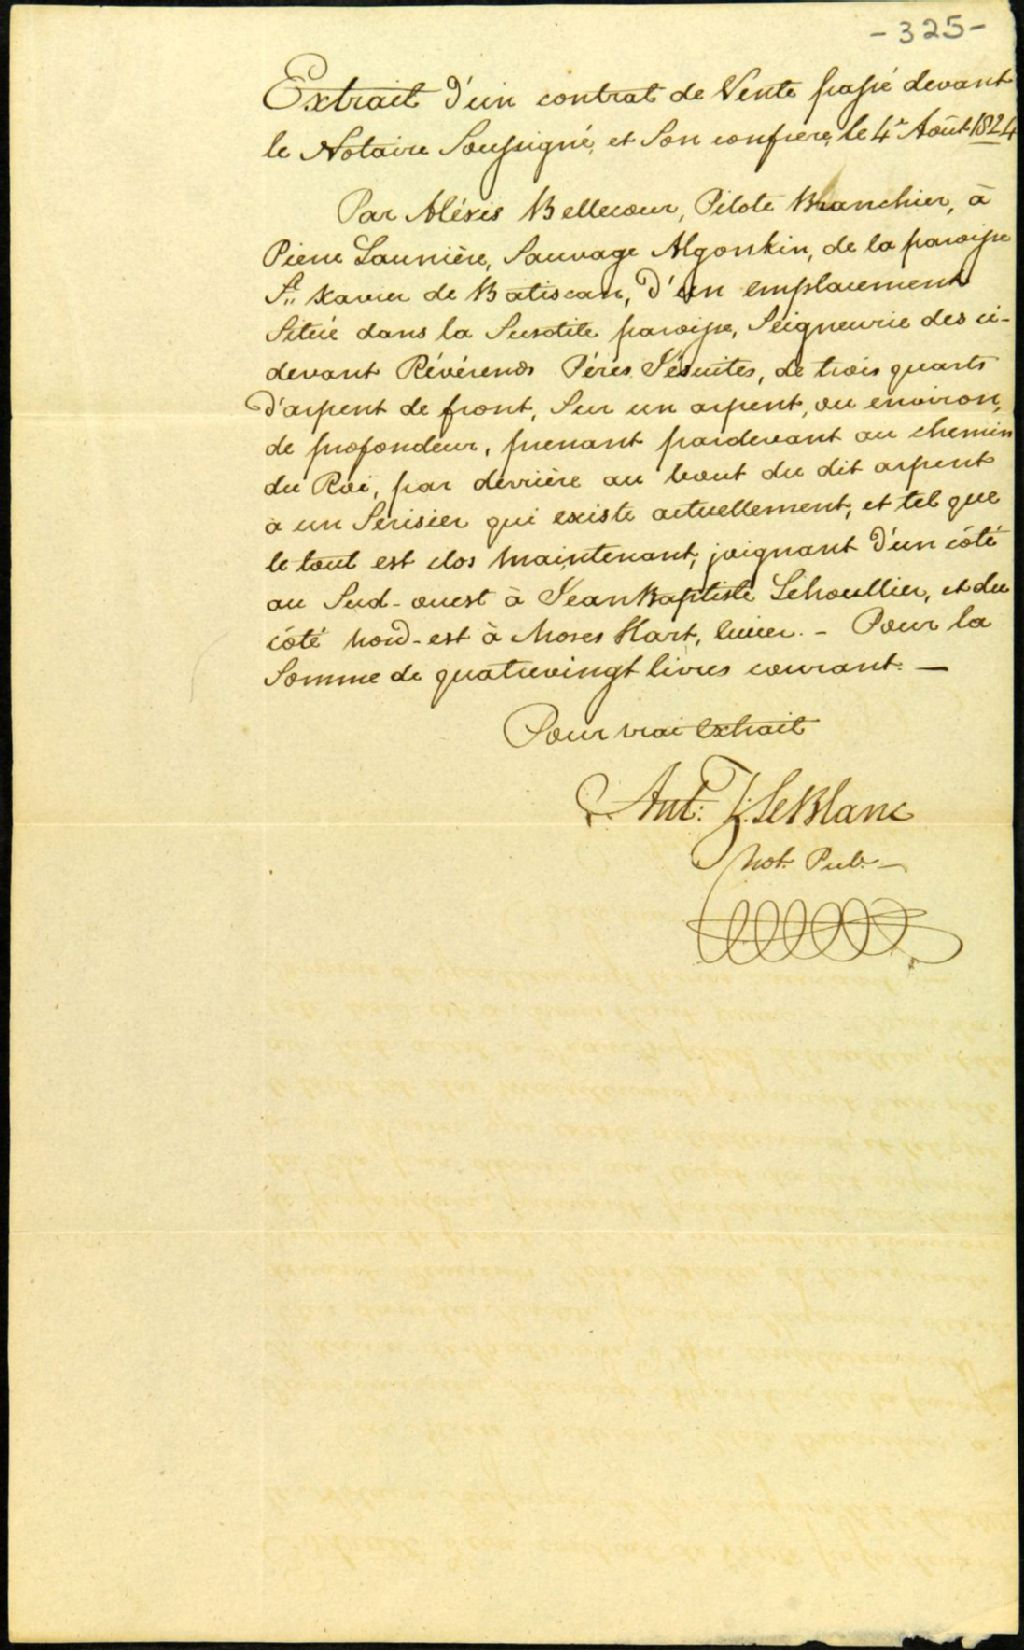 -325-
Extrait d'un contrat de Vente passé devant
le Notaire Soussigné, et Son confrere, le 4e Août 1824
Par Aléxis Bellecour, Pilote Branchier, à
Pierre Launière, Sauvage Algonkin, de la paroisse
St. Xavier de Batiscan, d'un emplacement
Situé dans la Susdite paroisse, Seigneurie des ci-
devant Révérends Péres Jésuites, de trois quarts
d'arpent de front, Sur un arpent, ou environ,
de profondeur, prenant pardevant au chemin
du Roi, par dérrière au bout du dit arpent
à un Serisier qui existe actuellement, et tel que
le tout est clos maintenant, joignant d'un côté
au Sud-ouest à Jean Baptiste Lehoullier, et du
côté nord-est à Moses Hart, Ecuier. - Pour la
Somme de quatrevingt livres courant. —
Pour vrai extrait
Ant: Z: LeBlanc
Not. Pub. —